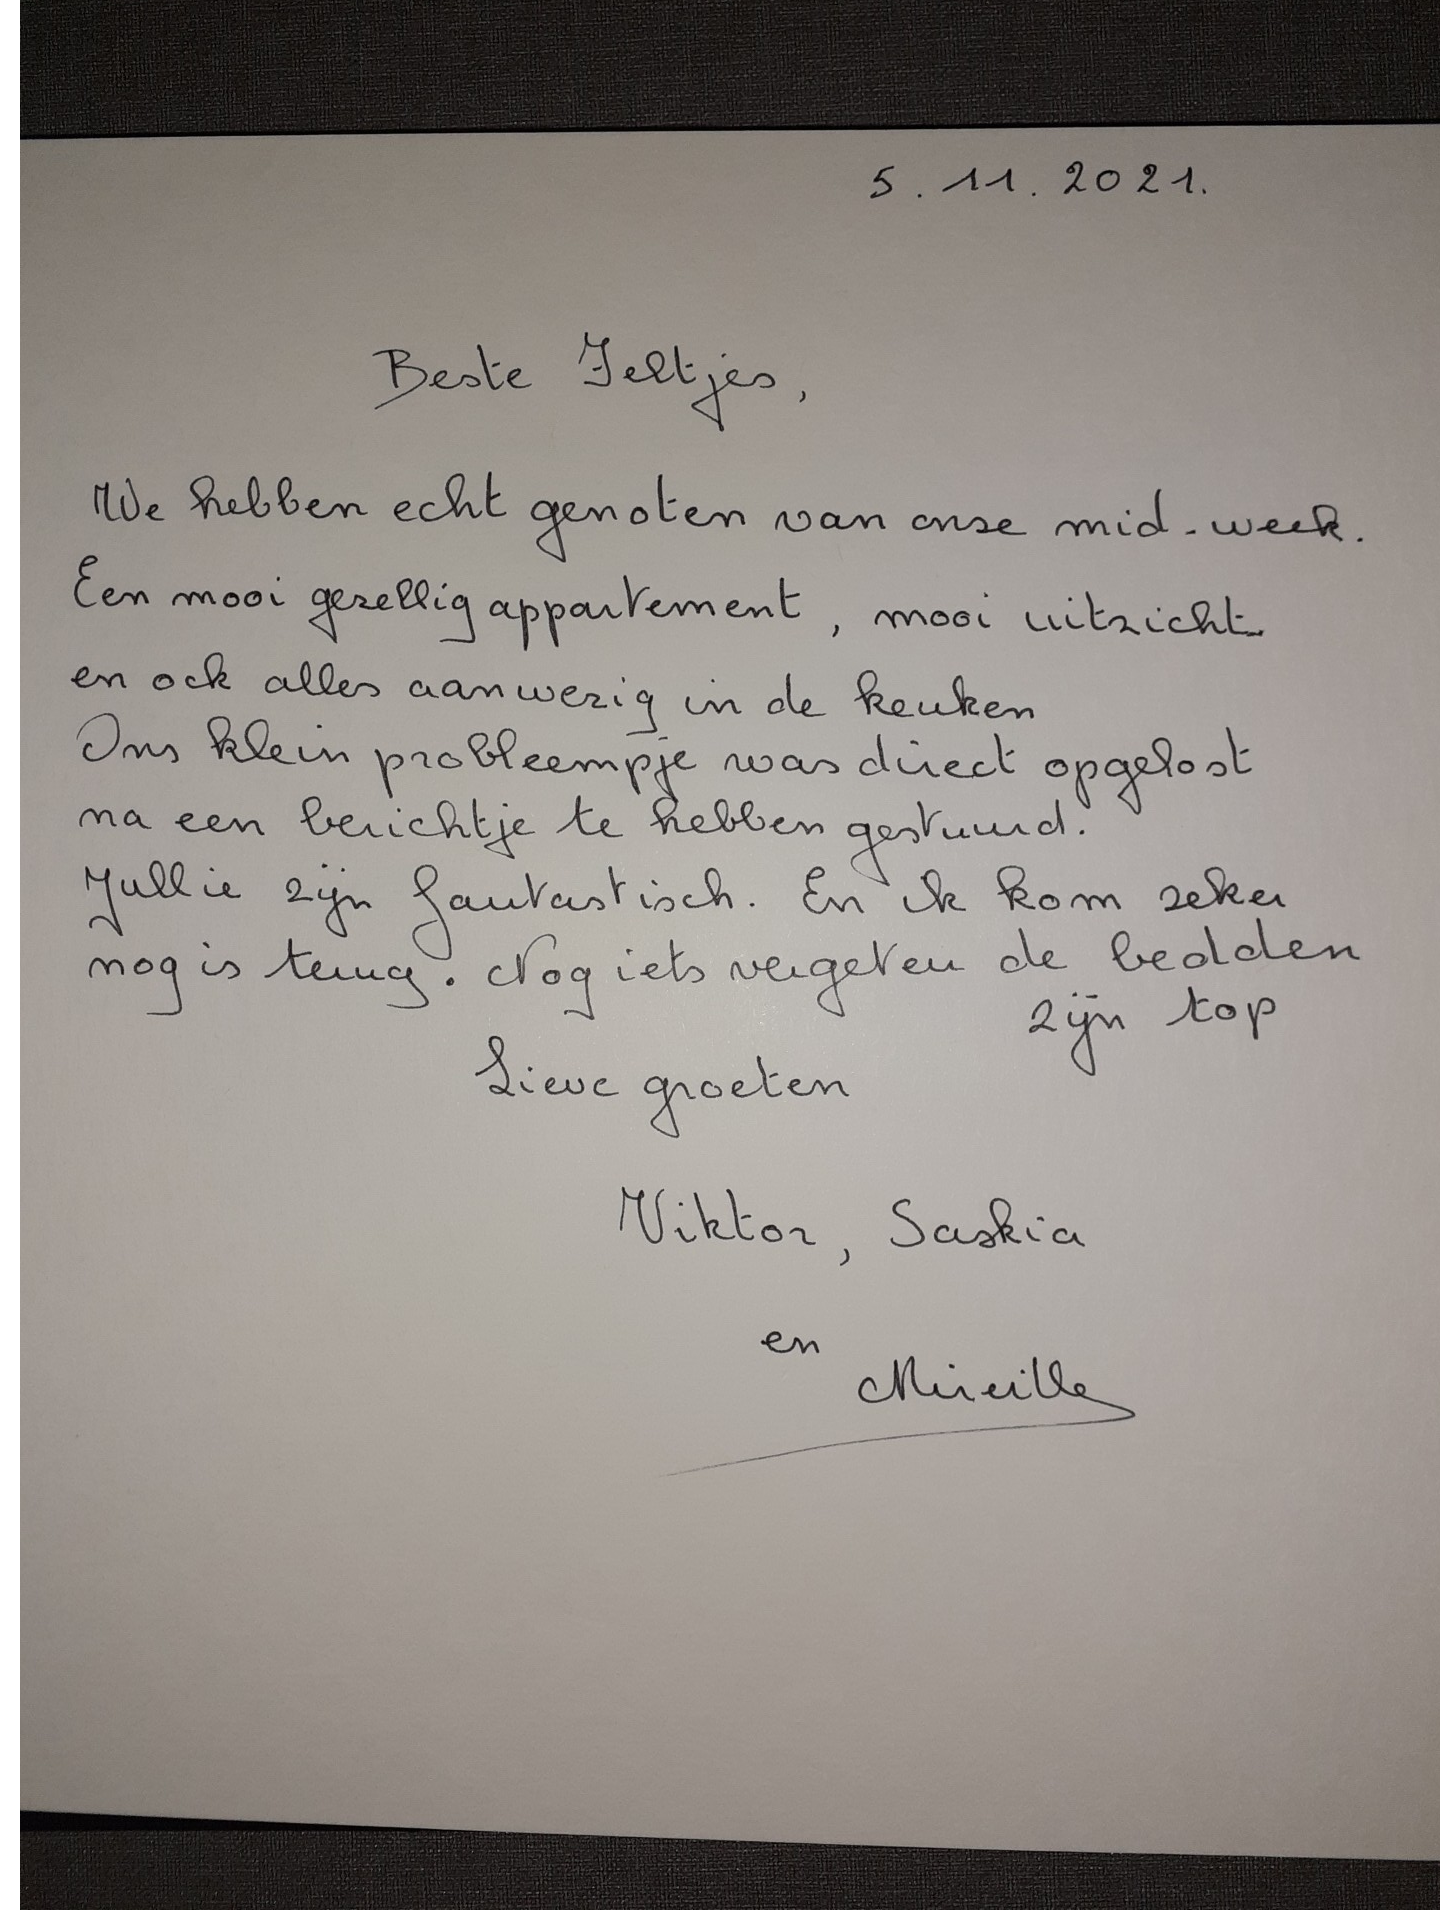 5.11.2021.
Beste Jeltjes,
We hebben echt genoten van onze mid-week.
Een mooi gezellig appartement, mooi uitzicht
en ook alles aanwezig in de keuken
Ons klein probleempje was direct opgelost
na een berichtje te hebben gestuurd.
Jullie zijn fantastisch. En ik kom zeker
nog is terug. Nog iets vergeten de bedden
zijn top
Lieve groeten
Viktor, Saskia
en
Mireille